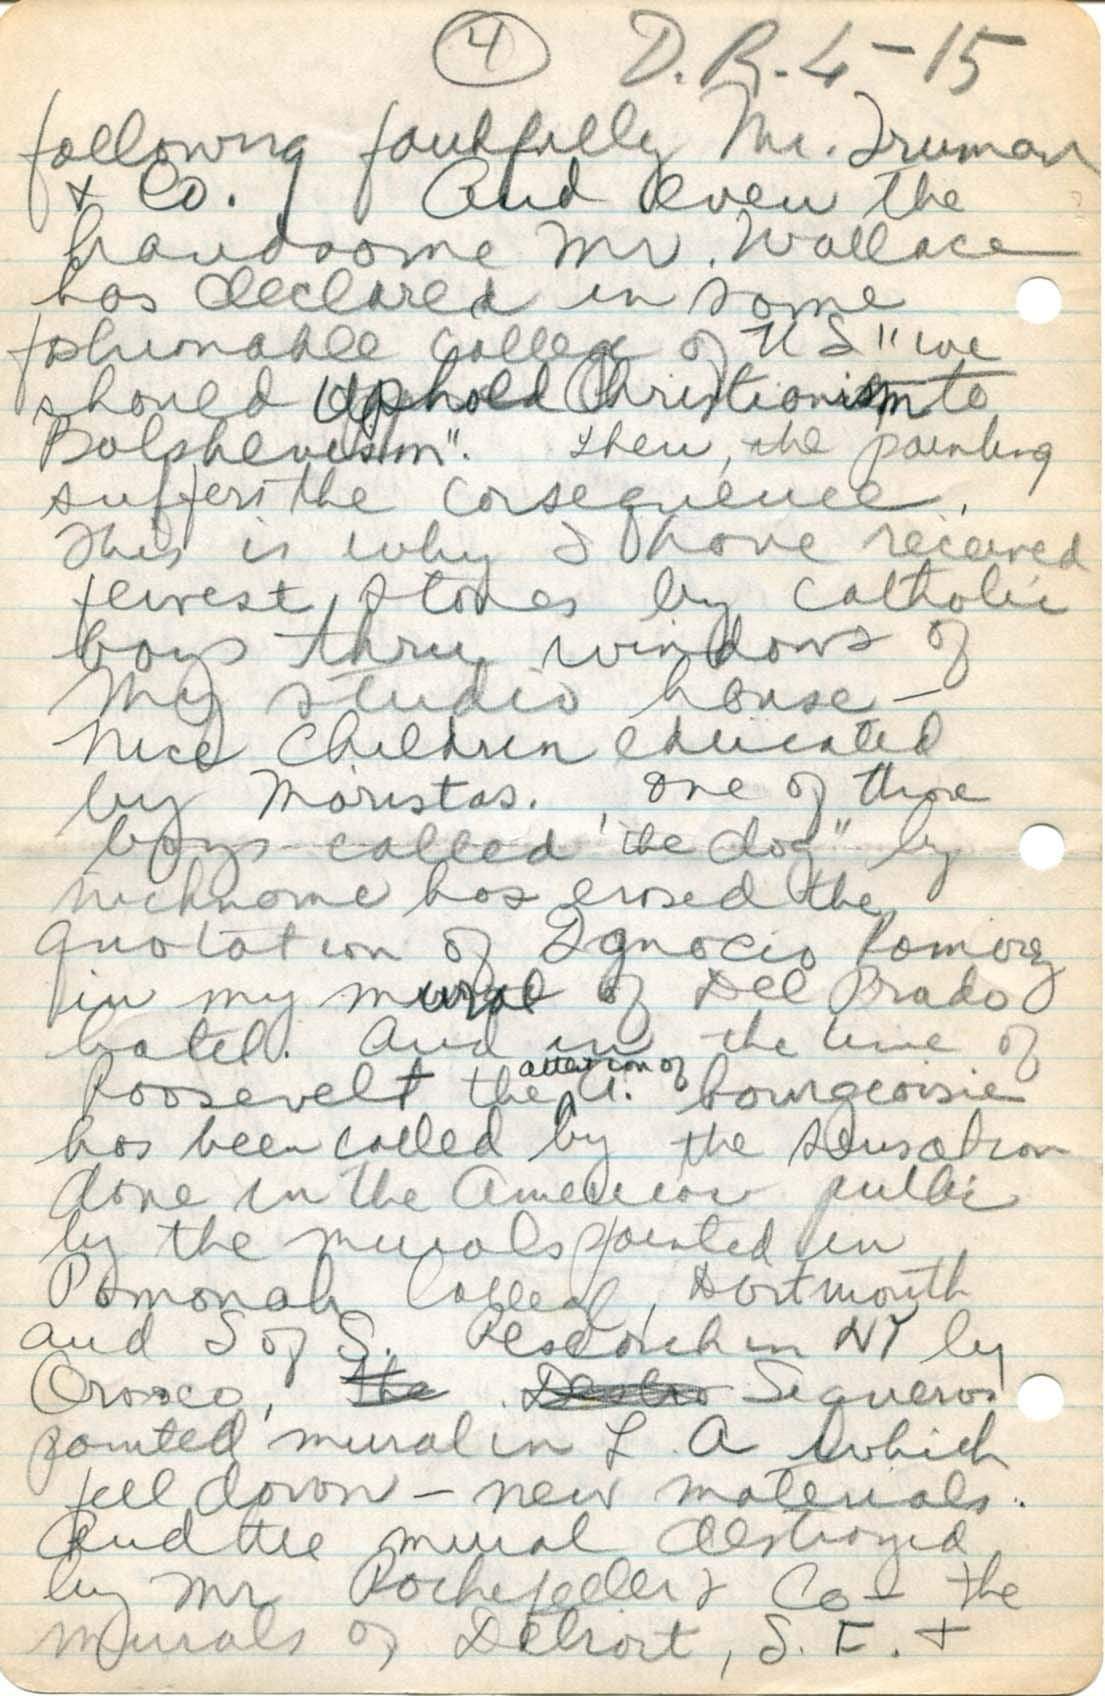 4 D.R. 4-15
following faithfully Mr. Truman
& Co. And even the
handsome Mr. Wallace
has declared in some
fashionable college of US "we
should uphold Christianism to
Bolshevism". Then, the painting
suffers the consequence.
This is why I have received
fewest stones by catholic
boys thru windows of
my studio house –
Nice children educated
by Maristas. One of those
boys called "the dog" by
nickname has erased the
quotation of Ignacio Ramirez
in my mural of Del Prado
hotel. And in the time of
attention of
Roosevelt the A. bourgeoisie
has been called by the sensation
done in the American public
by the murals painted in
Pomonah College, Dartmouth
and S of S. Research in NY by
Orozco, the Siqueros
painted mural in L A which
fell down – new materials.
And the mural destroyed
by Mr Rockefeller & Co – the
murals of Detroit, S. F. +